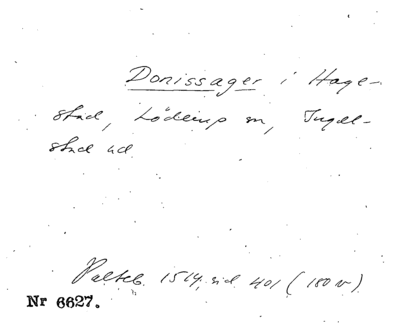 Donissager i Hage-
stad, Löderup sn, Ingel-
stad hd
Paltsb. 1514, sid. 401 (180 v)
Nr 6627.